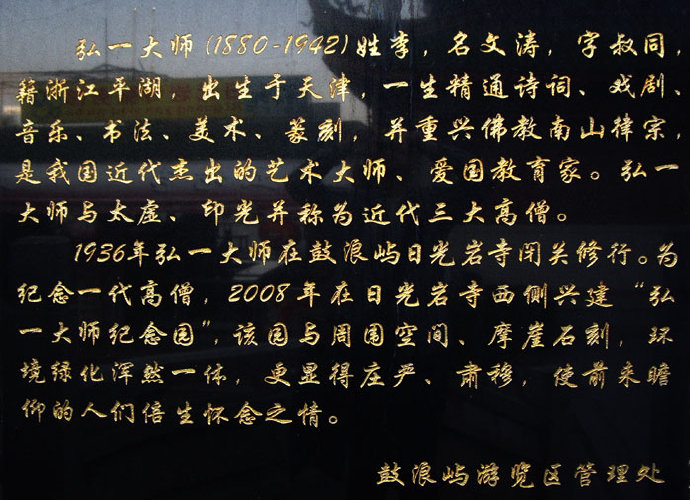 弘一大师(1880-1942)姓李，名文涛，字叔同，
籍浙江平湖，出生于天津，一生精通诗词、戏剧、
音乐、书法、美术、篆刻，并重兴佛教南山律宗，
是我国近代杰出的艺术大师、爱国教育家。弘一
大师与太虚、印光并称为近代三大高僧。
1936年弘一大师在鼓浪屿日光岩寺闭关修行。为
纪念一代高僧，2008年在日光岩寺西侧兴建“弘
一大师纪念园”，该园与周围空间、摩崖石刻，环
境绿化浑然一体，更显得庄严、肃穆，使前来瞻
仰的人们倍生怀念之情。
鼓浪屿游览区管理处